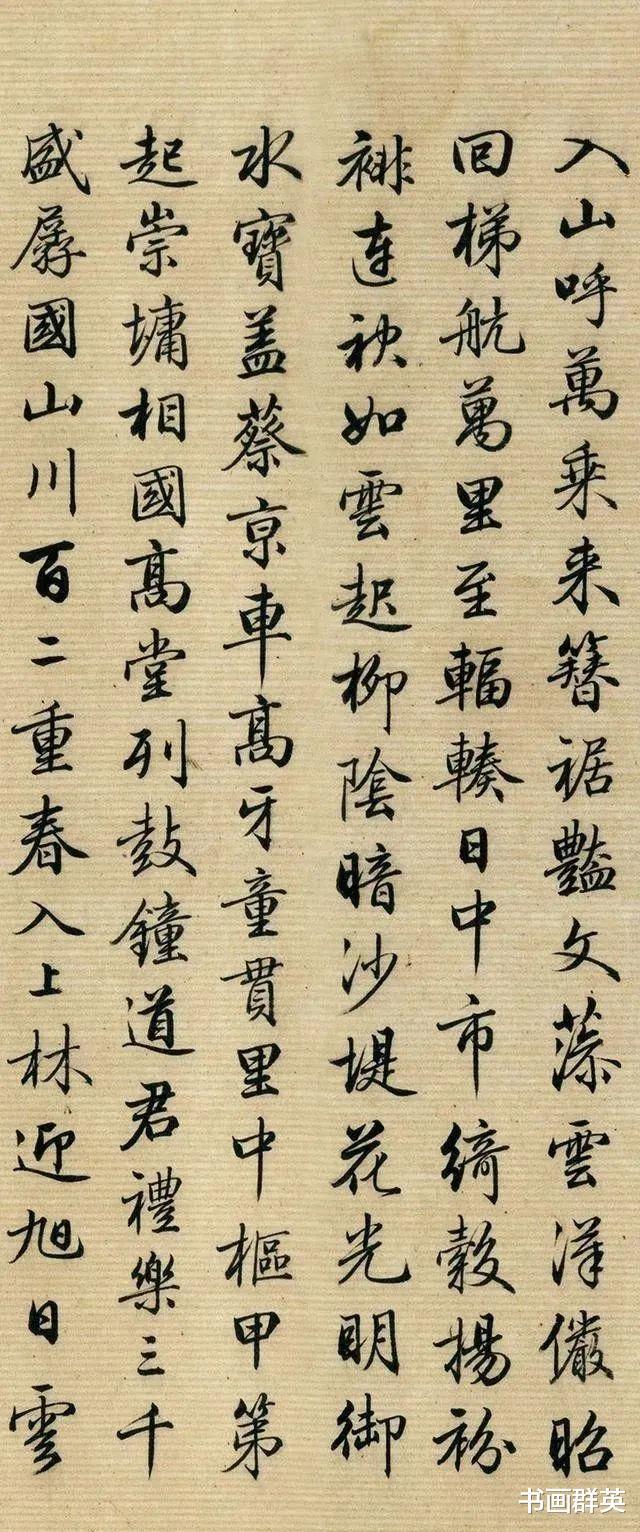 入山呼萬乘来簪裾豔文藻雲漢儼昭
回梯航萬里至輻輳日中市綺縠揚衯
裶連袂如雲起柳陰暗沙堤花光明御
水寶盖蔡京車髙牙童貫里中樞甲第
起崇墉相國髙堂列鼓鐘道君禮樂三千
盛孱國山川百二重春入上林迎旭日雲
书画群英